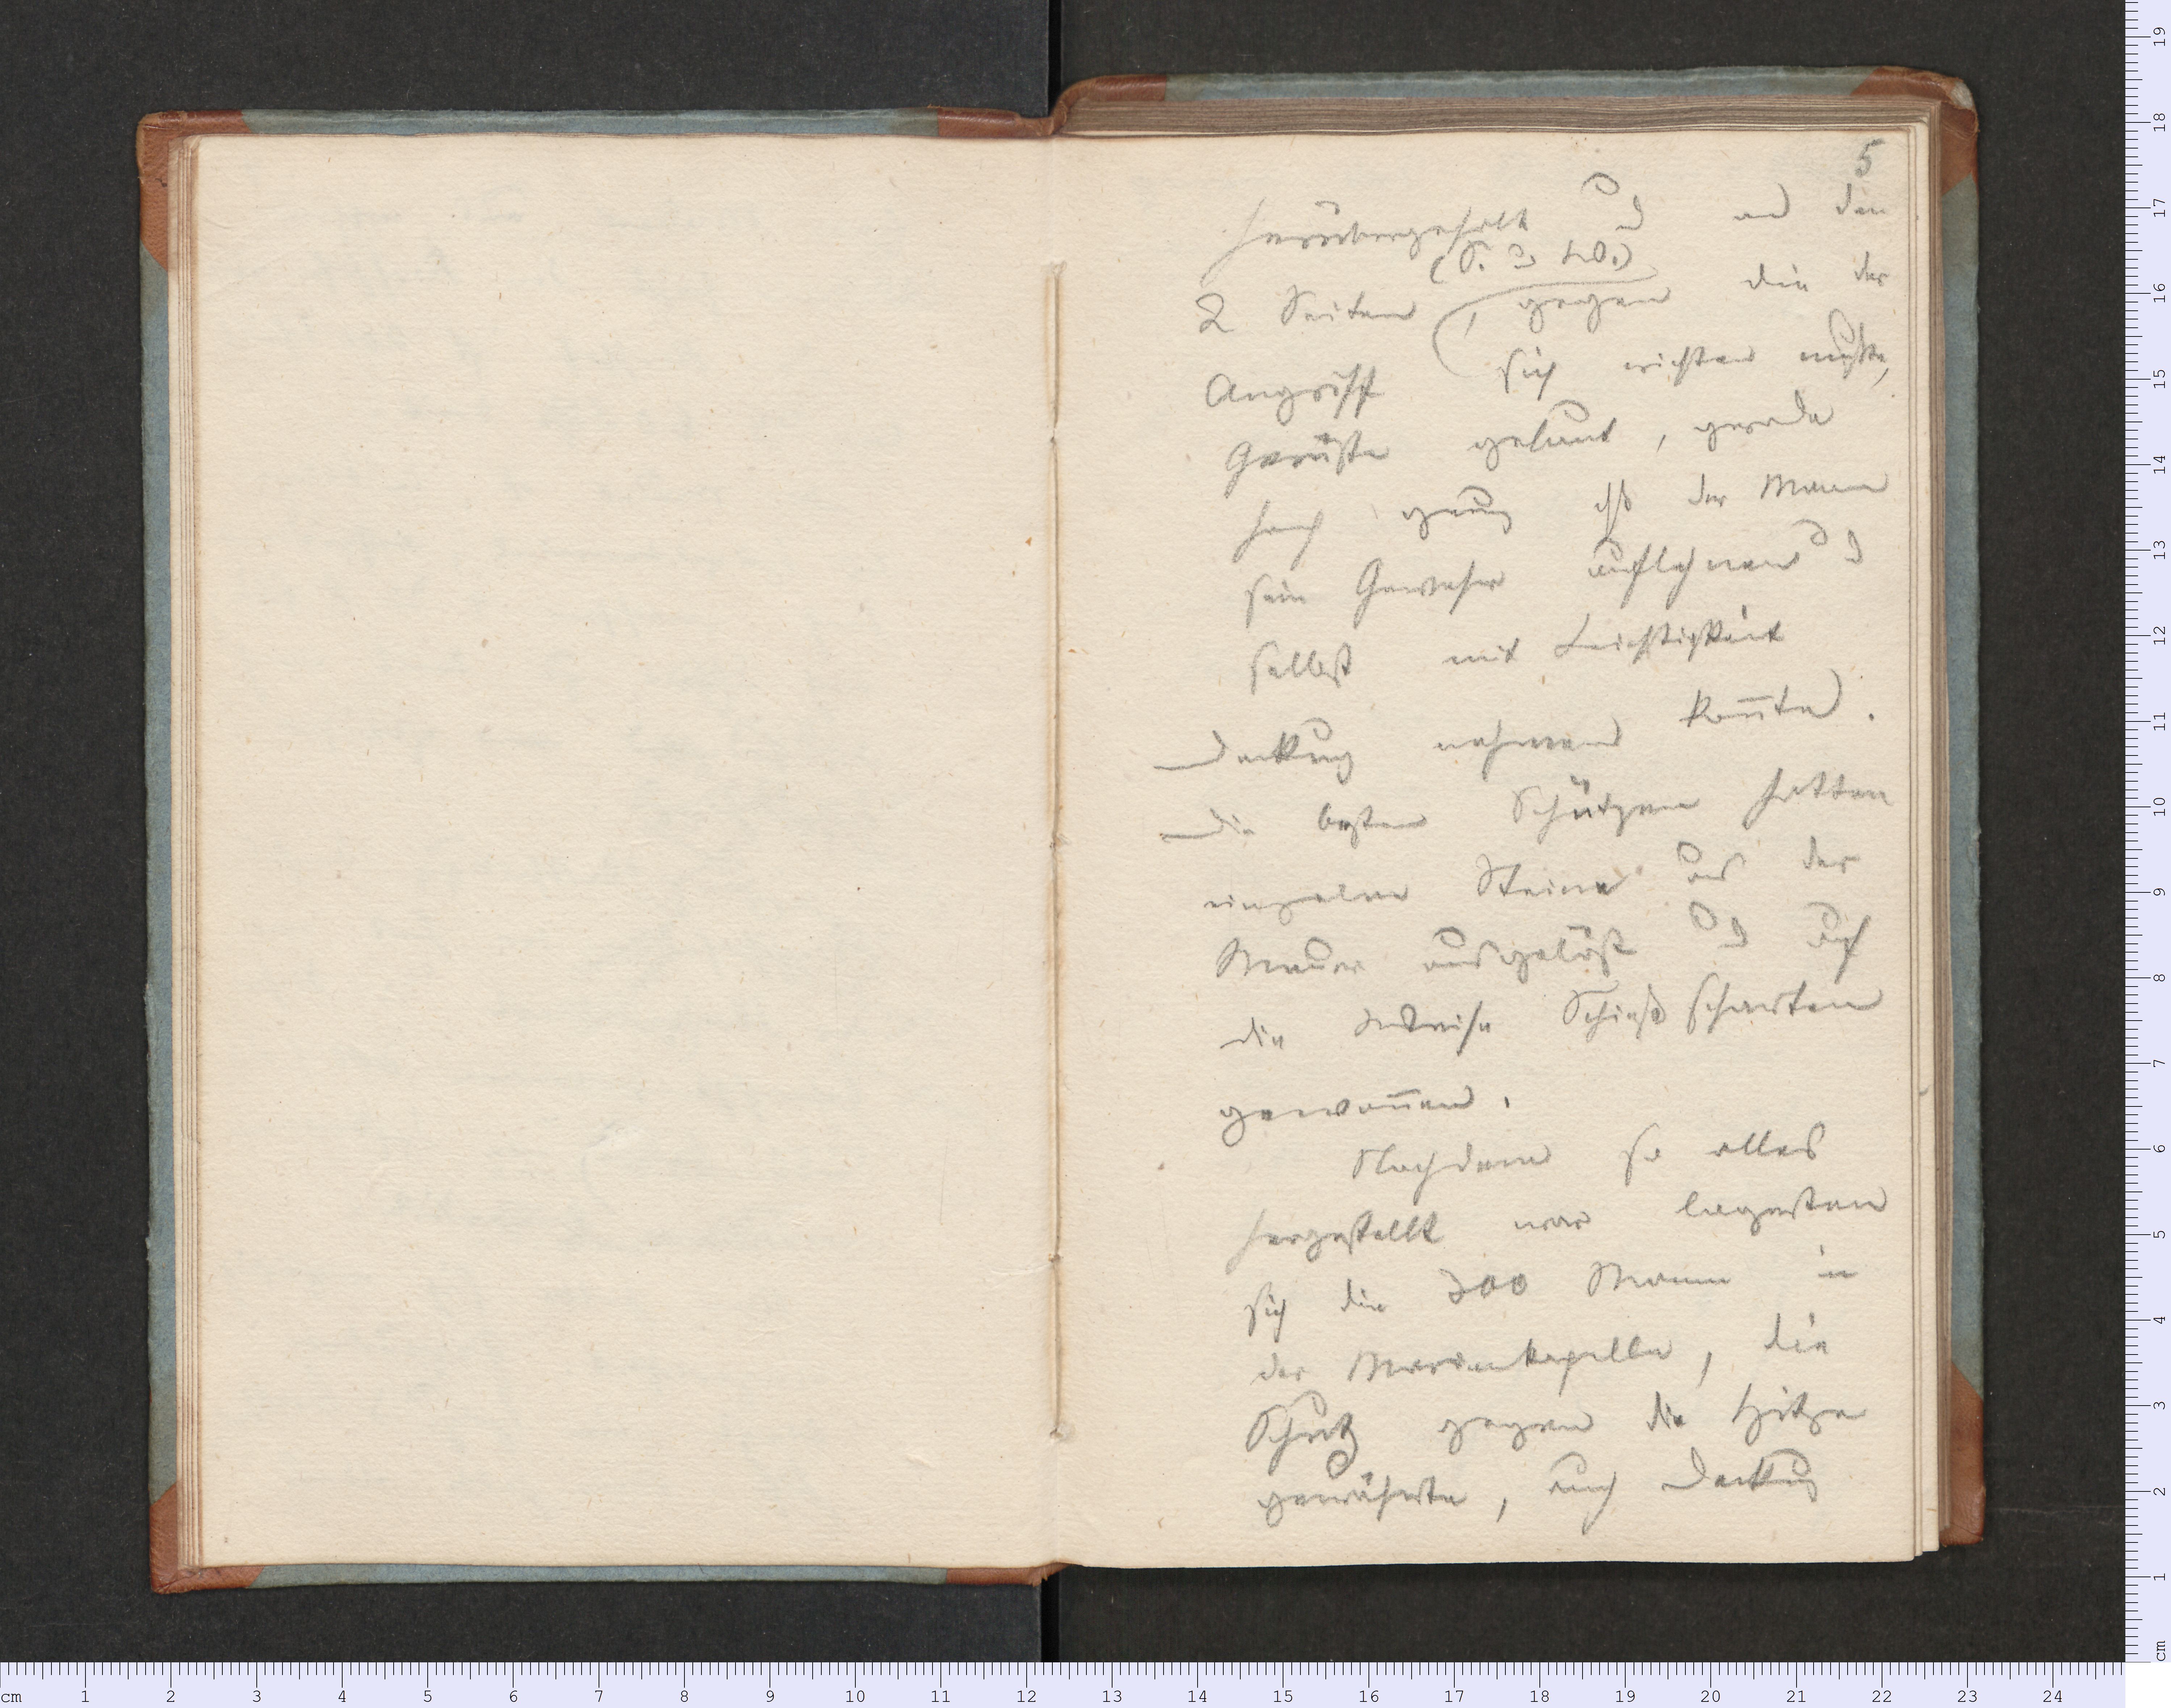 5
herübergeholt u an den
(S. u W.)
2 Seiten, gegen die der
Angriff sich richten mußte,
Gerüste gebaut, gerade
hoch genug daß der Mann
sein Gewehr auflehnen u
selbst mit Leichtigkeit
Deckung nehmen konnte.
Die besten Schützen hatten
einzelne Steine aus der
Mauer ausgelöst u auf
die Weise Schießscharten
gewonnen.
Nachdem so alles
hergestellt war lagerten
sich die 300 Mann in
der Marienkapelle, die
Schutz gegen die Hitze
gewährte, auch Deckung
cm 1 2 3 4 5 6 7 8 9 10 11 12 13 14 15 16 17 18 19 20 21 22 23 24
cm 1 2 3 4 5 6 7 8 9 10 11 12 13 14 15 16 17 18 19